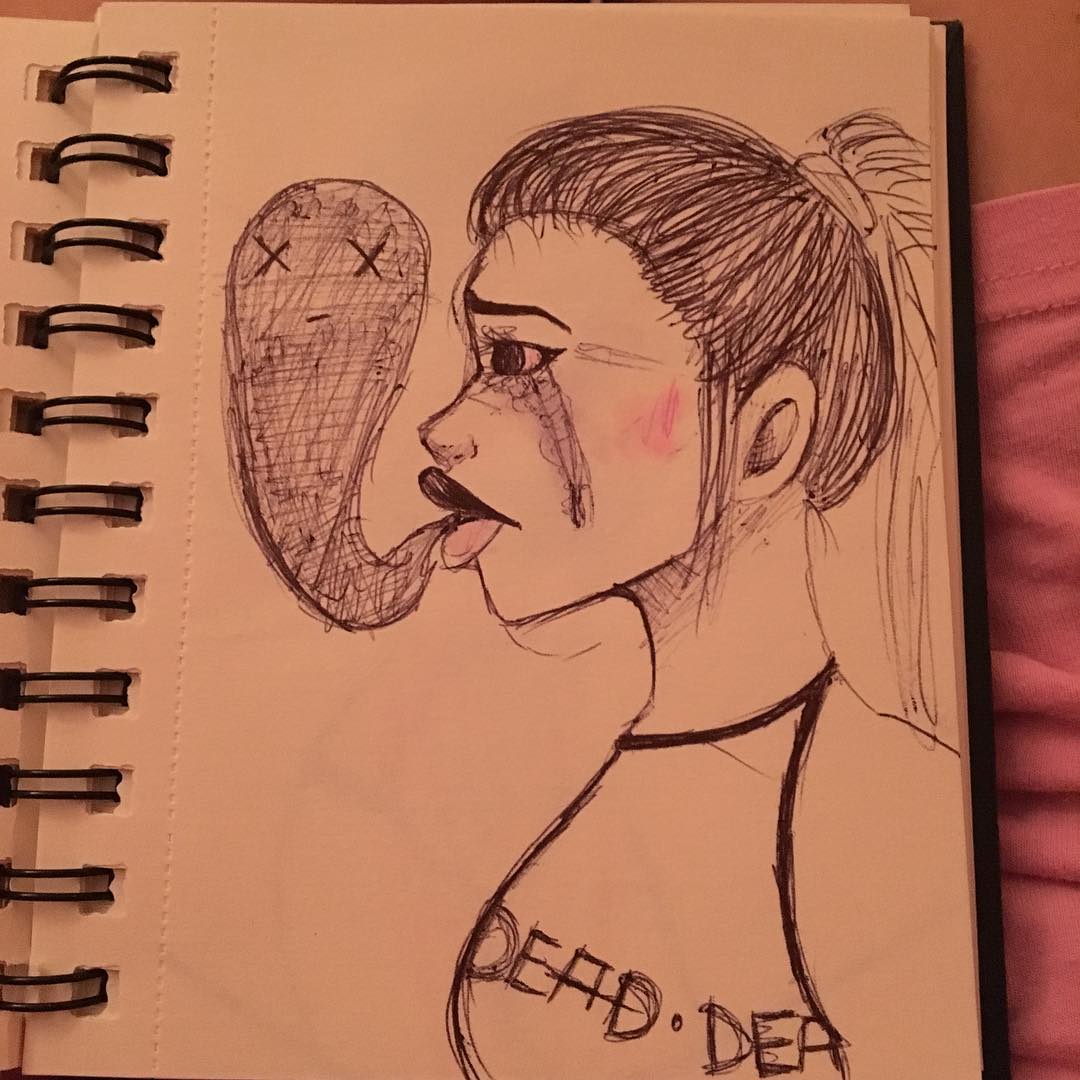 DEAD. DEA